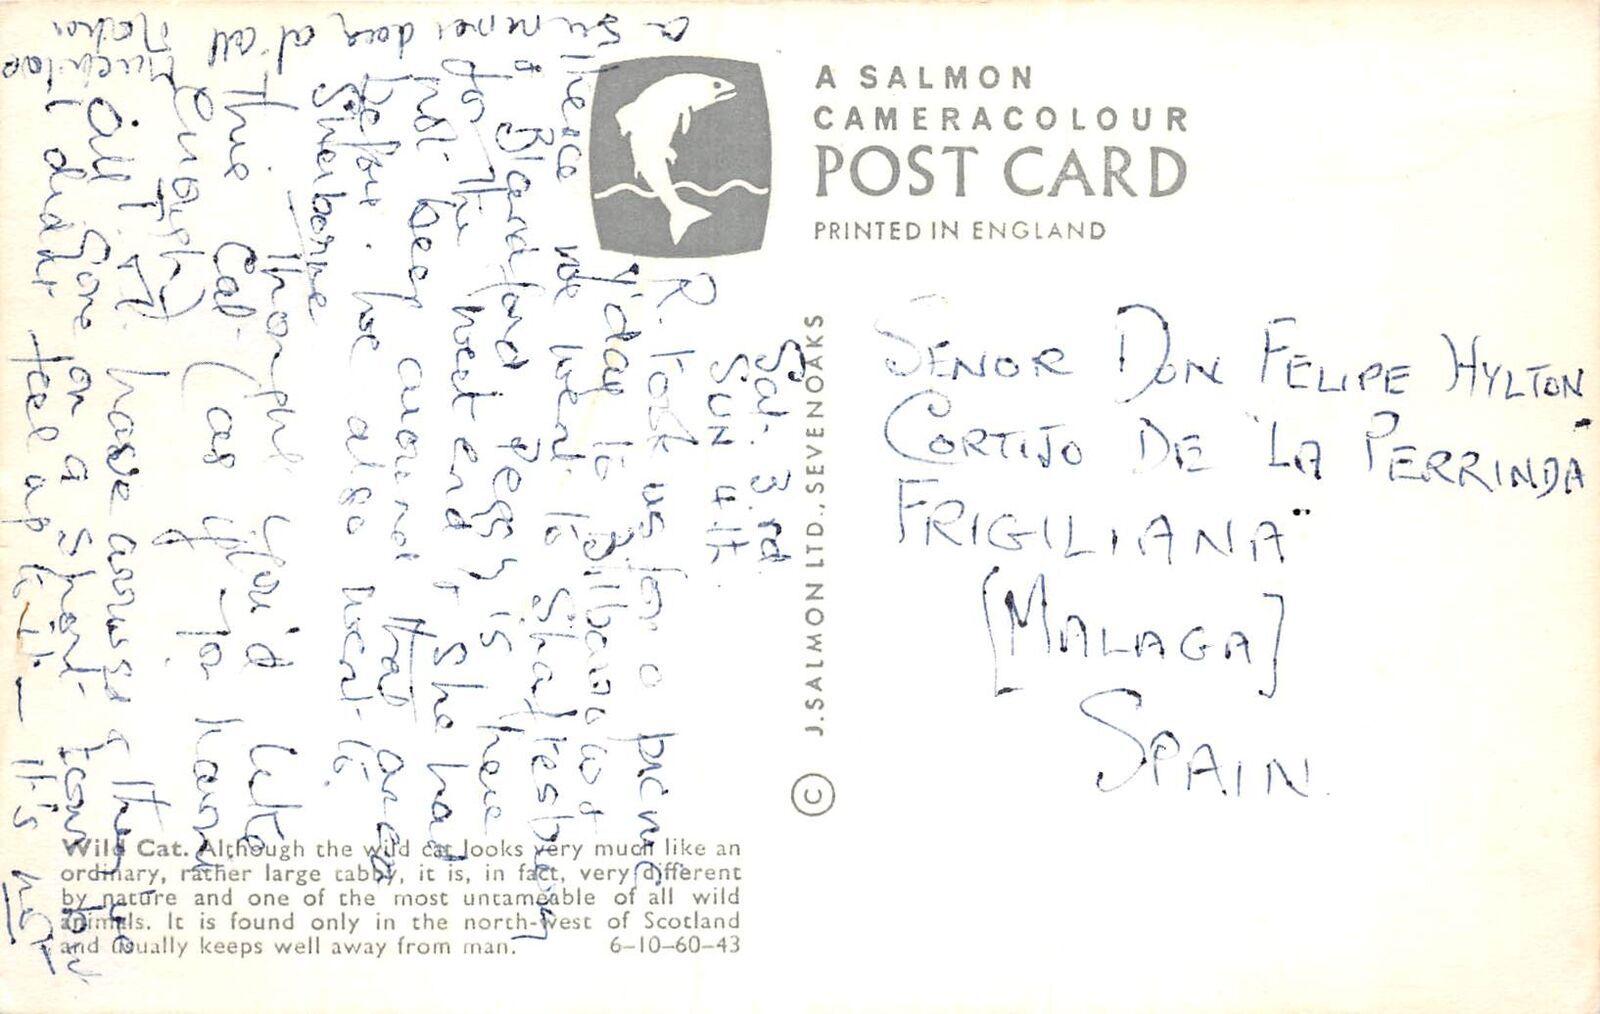 A SALMON
CAMERACOLOUR
POST CARD
PRINTED IN ENGLAND
J. SALMON LTD., SEVENOAKS ©
SENOR DON FELIPE HYLTON
CORTIJO DE "LA PERRINDA
FRIGILIANA"
[MALAGA]
SPAIN.
Sat. 3rd
SUN 4th
R. took us for a picnic
y'day to
thence we went to Shaftesbury
& Blandford Peggy is here
for the weekend, she had
not been around that area
before. We also went to
Sherborne
Thought you'd like
the Cat (as you
enough)
All have aunts & then
Gone on a short tour
I didn't feel up to it — it's not
a summer day at all
Wild Cat. Although the wild cat looks very much like an
ordinary, rather large tabby, it is, in fact, very different
by nature and one of the most untameable of all wild
animals. It is found only in the north-west of Scotland
and usually keeps well away from man. 6–10–60–43